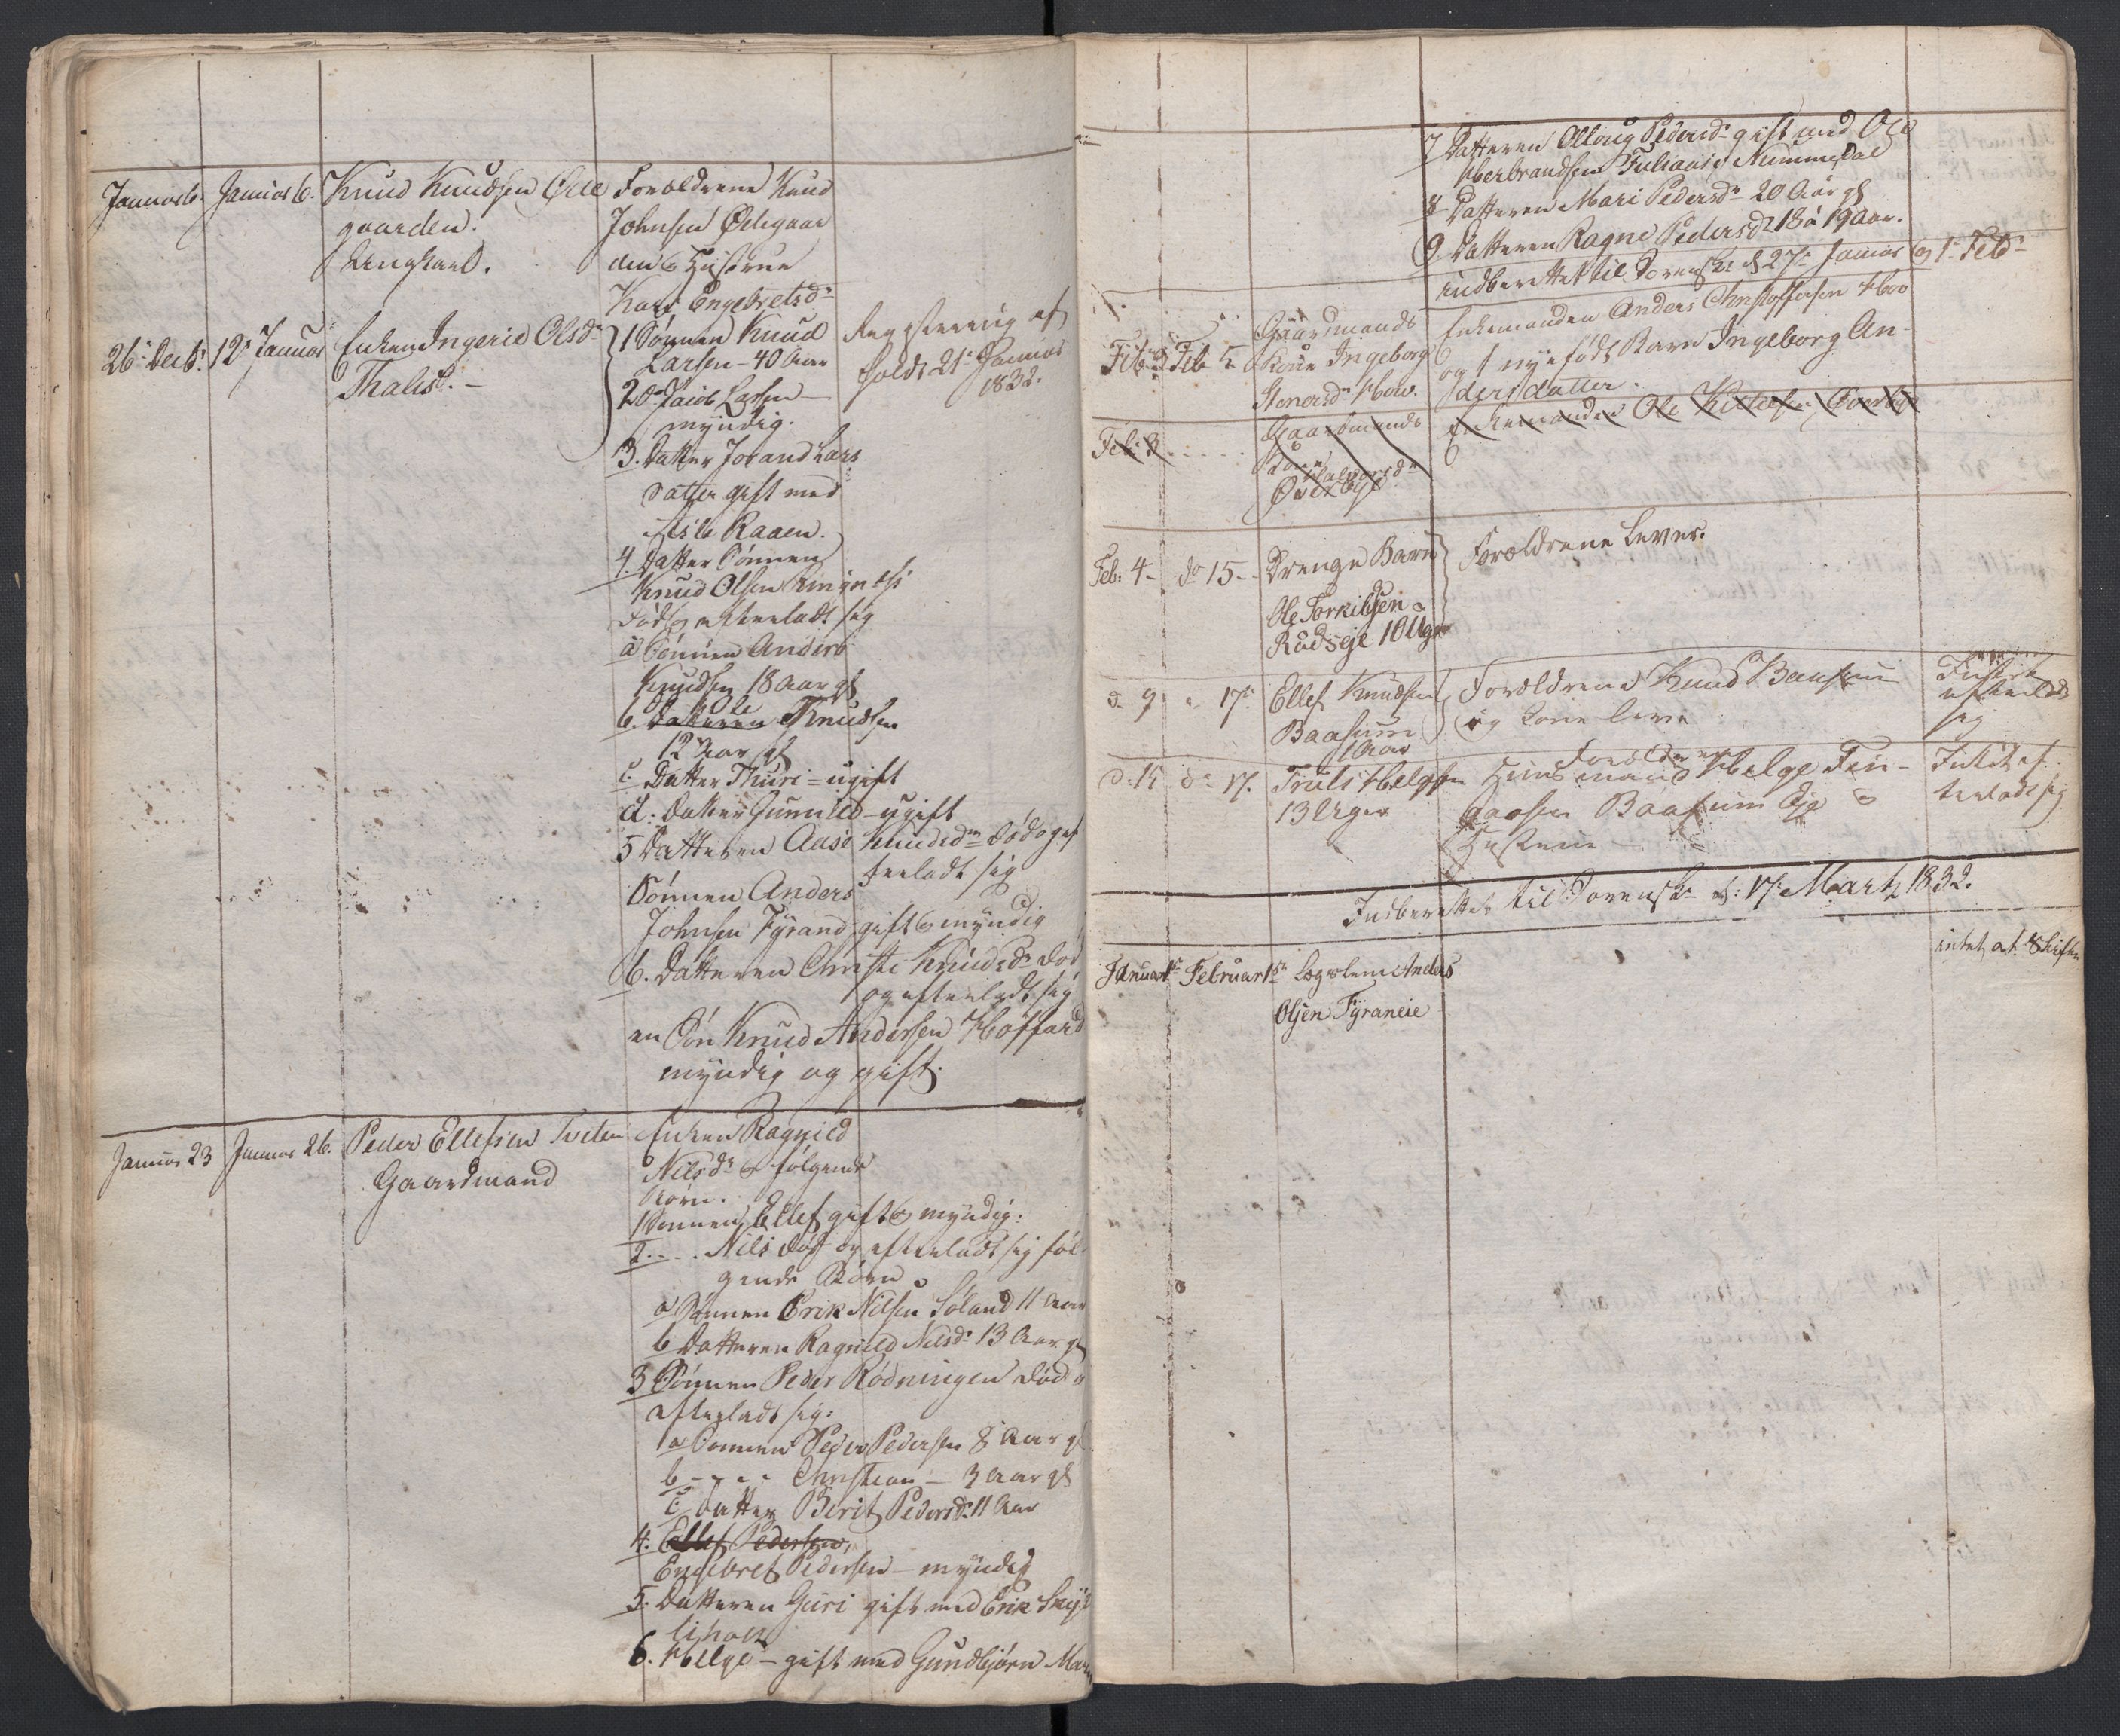 Januar 6. Januar 6. Knud Knudsen Øde
gaarden.
Ungkarl.
Forældrene Knud
Johnsen Ødegaar
den & Hustrue
Kari Engebretsd.
26 Decb. 12 Januar Enken Ingerie Olsd.
Thalis. –
1 Sønnen Knud
Larsen – 40 Aar
2 do Jacob Larsen –
myndig.
3. Datter Jorand Lars
datter gift med
Asle Raaen.
4. Datter Sønnen
Knud Olsen
død og efterladt sig
a Sønnen Anders
Knudsen 18 Aar gl
b. Datteren Ole Knudsen
12 Aar gl
c. Datter Thuri – ugift
d. Datter Gunnild – ugift
5 Datteren Aase Knudsd. død og ef
terladt sig
Sønnen Anders
Johnsen Fyrand, gift & myndig
6. Datteren Christi Knudsd. død
og efterladt sig
en Søn Knud Andersen Hoffard
myndig og gift.
Registrering af
holdt 21 Januar
1832.
Januar 23 Januar 26. Peder Ellefsen Tveten
Gaardmand
Enken Ragnild
Nilsd. & følgende
Børn.
1 Sønnen Ellef gift & myndig:
2 . . . . Nils død og efterladt sig føl-
gende Børn
a Sønnen Erik Nilsen Soland 11 Aar
b Datteren Ragnild Nilsd. 13 Aar gl
3 Sønnen Peder Rødningen død o
efterladt sig:
a Sønnen Peder Pedersen 8 Aar gl
b – – – – Christian – 3 Aar gl
c Datter Berit Pedersd. 11 Aar
4. Ellef Pedersen,
Engebret Pedersen – myndig
5. Datteren Guri gift med Erik
6. Helge – gift med Gundbjørn
7 Datteren Pedersd. gift med Ole
Herbrandsen Nummedal
8 Datteren Mari Pedersd. 20 Aar gl
9 Datteren Ragne Pedersd. 18 à 19 Aar.
indberettet til Sorensk. d 27 Januar og 1 Feb.
Feb. Feb 5 Gaardmands
Kone Ingeborg
Stenersd. Hoov.
Enkemanden Anders Christoffersen Hoov
og 1 nyefødt Barn Ingeborg An-
dersdatter.
Feb: 3 . . . . . Gaardmands
Kone
Halvorsd.
Øverbye
Enkemanden Ole Kittelsen Øverbye
Feb: 4 – do 15 – Drenge Barn
Ole Torkildsen
Rudseje 10 Uger
Forældrene Lever.
d. 9 17 Ellef Knudsen
Baasum
1 Aar
Forældrene Knud Baasum
og Kone leve
Intet
efterladt
sig
d. 14 do 17. Truls Helgesen
13 Uger
Forældrene
Huusmand Helge Fin-
gaarsen Baasum Eje &
Hustrue
Intet ef-
terladt sig
Indberettet til Sorensk. d: 17 Marts 1832.
Januar Februar Lægslem Anders
Olsen Fyraneie
intet at Skifte